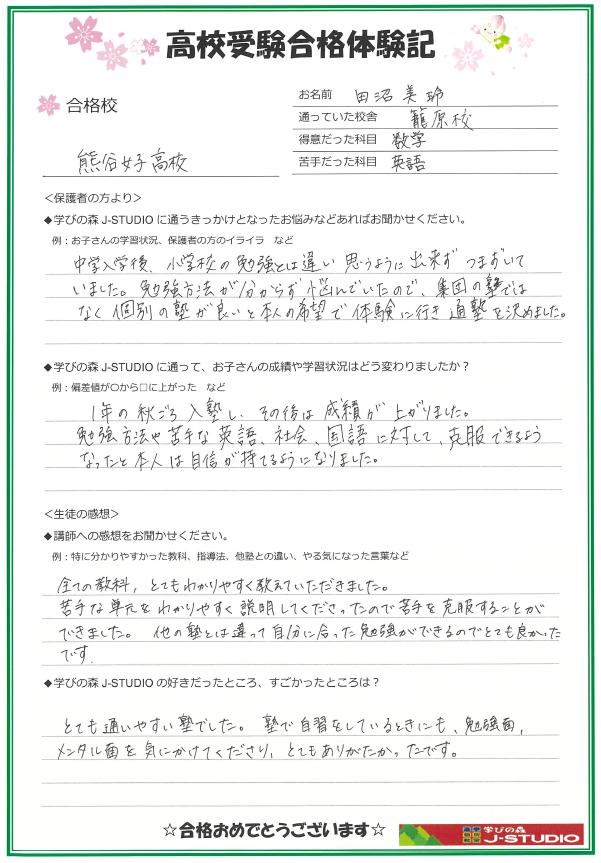 高校受験合格体験記
合格校
熊谷女子高校
お名前 田沼 美玲
通っていた校舎 籠原校
得意だった科目 数学
苦手だった科目 英語
＜保護者の方より＞
◆学びの森 J-STUDIO に通うきっかけとなったお悩みなどあればお聞かせください。
例：お子さんの学習状況、保護者の方のイライラ など
中学入学後、小学校の勉強とは違い 思うように出来ず つまずいて
いました。勉強方法が分からず悩んでいたので、集団の塾では
なく個別の塾が良いと本人の希望で体験に行き通塾を決めました。
◆学びの森 J-STUDIO に通って、お子さんの成績や学習状況はどう変わりましたか？
例：偏差値が〇から□に上がった など
1年の秋ごろ入塾し、その後は成績が上がりました。
勉強方法や苦手な英語、社会、国語に対して、克服できるよう
なったと本人は自信が持てるようになりました。
＜生徒の感想＞
◆講師への感想をお聞かせください。
例：特に分かりやすかった教科、指導法、他塾との違い、やる気になった言葉など
全ての教科、とてもわかりやすく教えていただきました。
苦手な単元をわかりやすく説明してくださったので苦手を克服することが
できました。 他の塾とは違って自分に合った勉強ができるのでとても良かった
です.
◆学びの森 J-STUDIO の好きだったところ、すごかったところは？
とても通いやすい塾でした。 塾で自習をしているときにも、勉強面,
メンタル面を気にかけてくださり, とてもありがたかったです。
☆合格おめでとうございます☆
学びの森
J-STUDIO